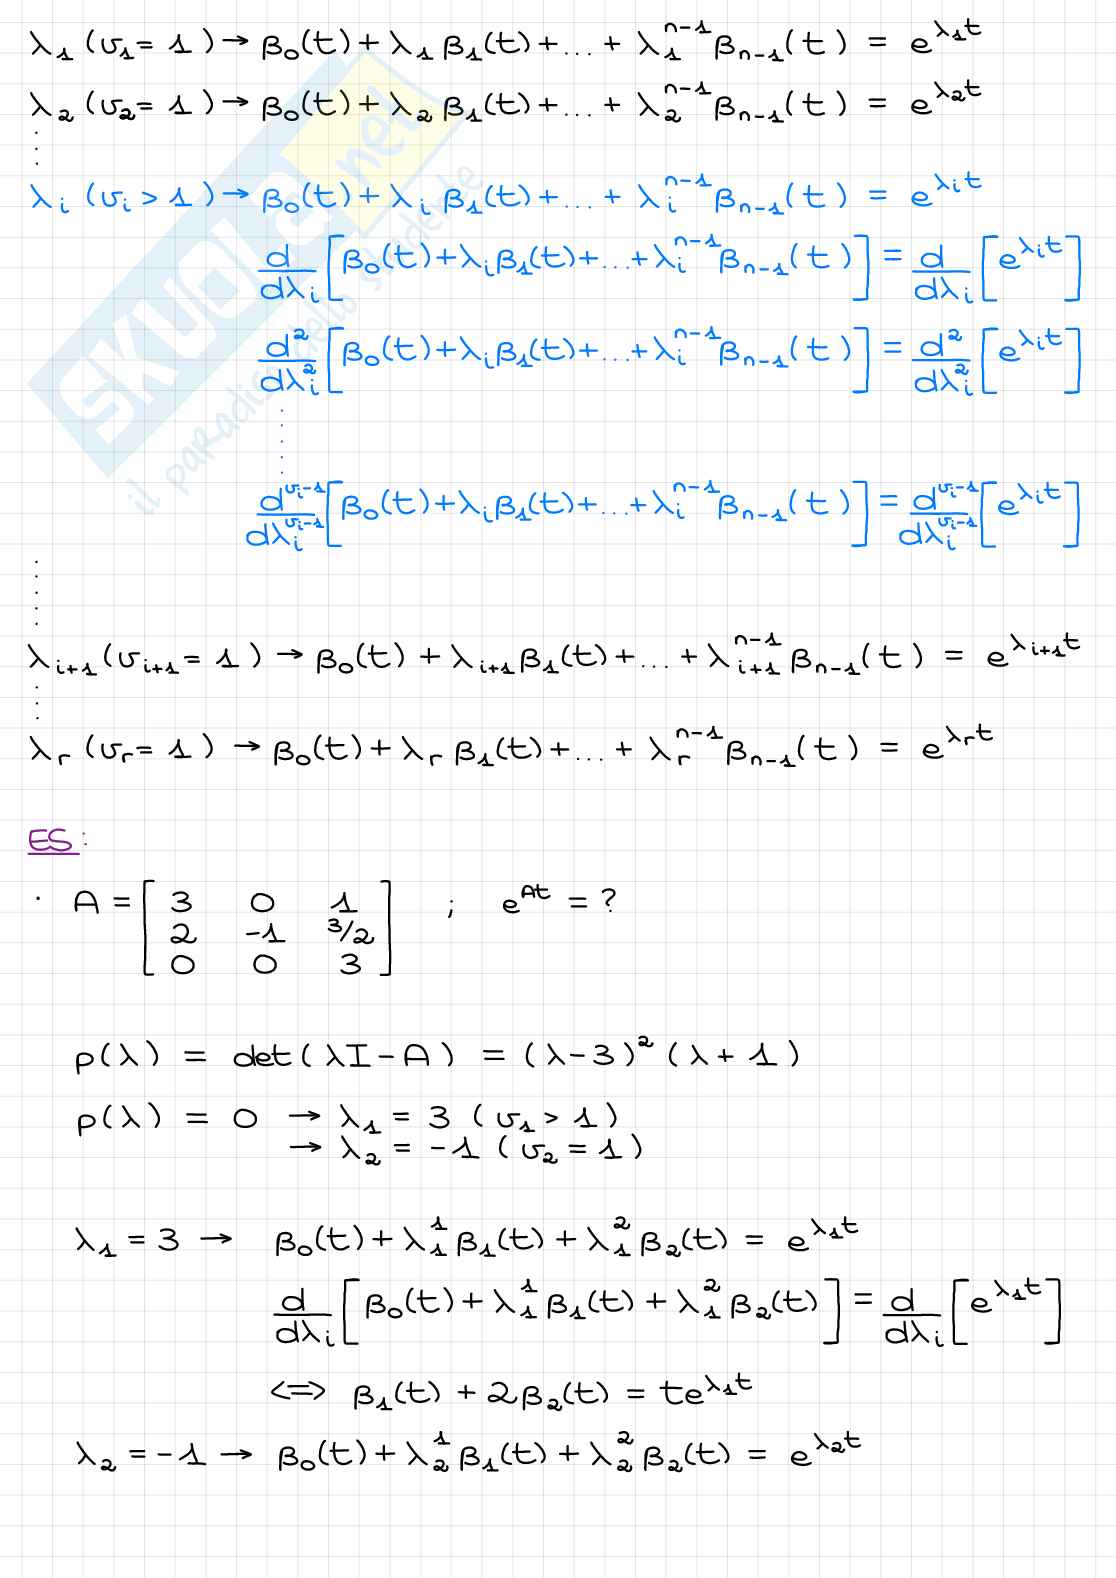 λ₁ (υ₁ = 1) → β₀(t) + λ₁ β₁(t) + ... + λ₁ⁿ⁻¹ βₙ₋₁(t) = e^{λ₁t}
λ₂ (υ₂ = 1) → β₀(t) + λ₂ β₁(t) + ... + λ₂ⁿ⁻¹ βₙ₋₁(t) = e^{λ₂t}
⋮
λᵢ (υᵢ > 1) → β₀(t) + λᵢ β₁(t) + ... + λᵢⁿ⁻¹ βₙ₋₁(t) = e^{λᵢt}
d/dλᵢ [β₀(t) + λᵢβ₁(t) + ... + λᵢⁿ⁻¹ βₙ₋₁(t)] = d/dλᵢ [e^{λᵢt}]
d²/dλᵢ² [β₀(t) + λᵢβ₁(t) + ... + λᵢⁿ⁻¹ βₙ₋₁(t)] = d²/dλᵢ² [e^{λᵢt}]
⋮
d^{υᵢ-1}/dλᵢ^{υᵢ-1} [β₀(t) + λᵢβ₁(t) + ... + λᵢⁿ⁻¹ βₙ₋₁(t)] = d^{υᵢ-1}/dλᵢ^{υᵢ-1} [e^{λᵢt}]
⋮
λᵢ₊₁ (υᵢ₊₁ = 1) → β₀(t) + λᵢ₊₁ β₁(t) + ... + λᵢ₊₁ⁿ⁻¹ βₙ₋₁(t) = e^{λᵢ₊₁t}
⋮
λᵣ (υᵣ = 1) → β₀(t) + λᵣ β₁(t) + ... + λᵣⁿ⁻¹ βₙ₋₁(t) = e^{λᵣt}
ES:
· A = [3 0 1 ; e^{At} = ?
2 -1 3/2
0 0 3]
p(λ) = det(λI - A) = (λ - 3)² (λ + 1)
p(λ) = 0 → λ₁ = 3 (υ₁ > 1)
→ λ₂ = -1 (υ₂ = 1)
λ₁ = 3 → β₀(t) + λ₁¹ β₁(t) + λ₁² β₂(t) = e^{λ₁t}
d/dλᵢ [β₀(t) + λ₁¹ β₁(t) + λ₁² β₂(t)] = d/dλᵢ [e^{λ₁t}]
<=> β₁(t) + 2β₂(t) = te^{λ₁t}
λ₂ = -1 → β₀(t) + λ₂¹ β₁(t) + λ₂² β₂(t) = e^{λ₂t}
SKUOLA.net
il paradiso dello studente